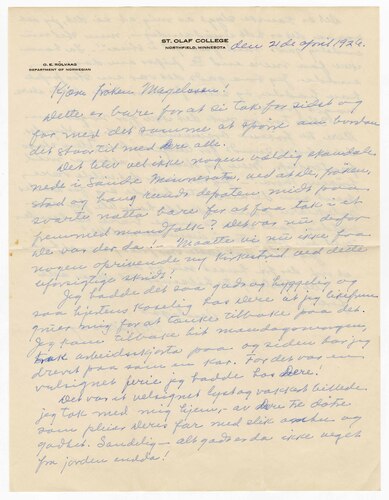 ST. OLAF COLLEGE
NORTHFIELD, MINNESOTA
den 21de april 1926.
O. E. RÖLVAAG
DEPARTMENT OF NORWEGIAN
Kjære frøken Magelssen!
Dette er bare for at si tak for sidst og
for med det samme at spørre om hvordan
det staar til med Dere alle.
Det blev vel ikke nogen vældig skandale
nede i Søndre Minnesota, ved at De, frøken,
stod og hang rundt depoten midt paa
svarte natta bare for at faa tak i et
fremmed mandfolk? Det var nu derfor
De var der da! – Maatte vi nu ikke faa
nogen oprivende ny kirkestrid ved dette
uforsigtige skridt!
Jeg hadde det saa gudsog hyggelig og
saa hjertens koselig hos Dere at jeg
mig for at tænke tilbake paa det.
Jeg kom tilbake hit mandagsmorgen,
trak arbeidsskjorta paa og siden har jeg
drevet paa som en kar. For det var en
velsignet ferie jeg hadde hos Dere!
Det var et velsignet lyst og vakkert billede
jeg tok med mig hjem, av Dere to døtre
som pleier Deres far med slik omhu og
godhet. Sandelig – alt godt er da ikke veget
fra jorden enda!